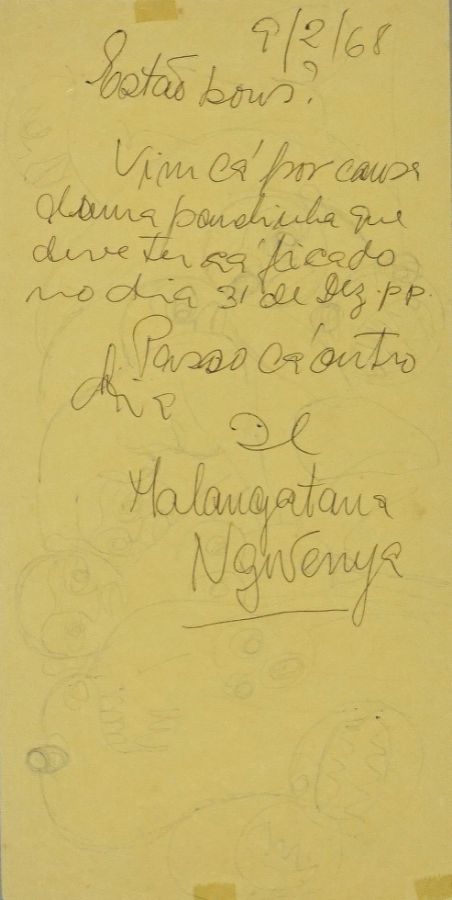 9/2/68
Estão bons?
Vim cá por causa
duma pandinha que
deve ter cá ficado
no dia 31 de Dez. pp.
Passo cá outro
dia
Malangatana
Ngwenya